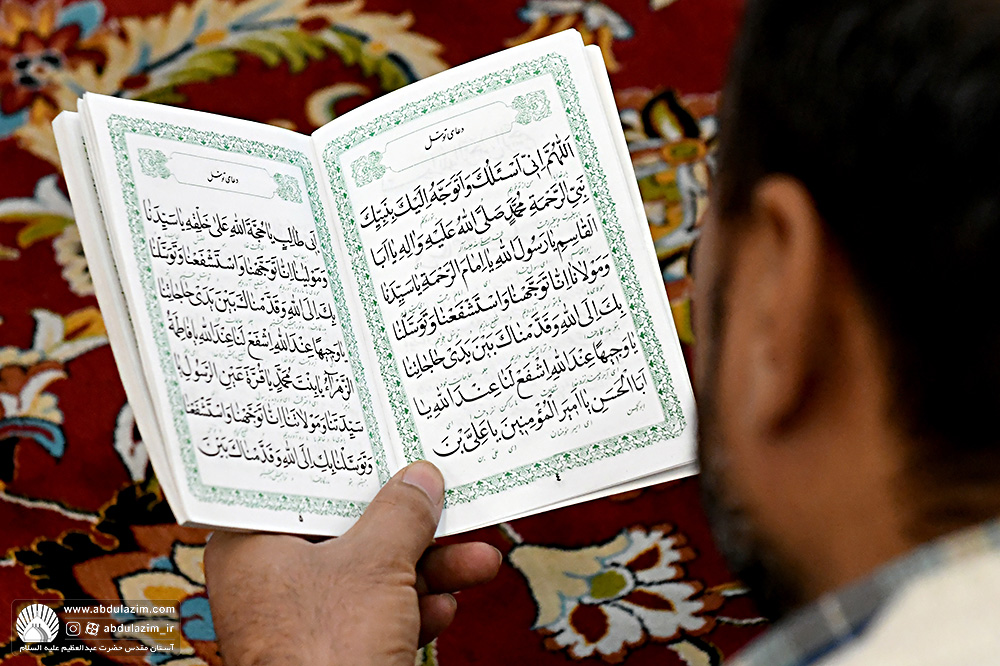 دعای توسل
اَللّٰهُمَّ اِنّی اَسْئَلُكَ وَاَتَوَجَّهُ اِلَیْكَ بِنَبِیِّكَ
نَبِیِّ الرَّحْمَةِ مُحَمَّدٍ صَلَّی اللهُ عَلَیْهِ وَاٰلِهِ یا اَبَا
الْقاسِمِ یا رَسُولَ اللهِ یا اِمامَ الرَّحْمَةِ یا سَیِّدَنا
وَمَوْلانا اِنّا تَوَجَّهْنا وَاسْتَشْفَعْنا وَتَوَسَّلْنا
بِكَ اِلَی اللهِ وَقَدَّمْناكَ بَیْنَ یَدَیْ حاجاتِنا
یا وَجیهاً عِنْدَ اللهِ اِشْفَعْ لَنا عِنْدَ اللهِ یا
اَبَا الْحَسَنِ یا اَمیرَ الْمُؤْمِنینَ یا عَلِیَّ بْنَ
٤
دعای توسل
اَبی طالِبٍ یا حُجَّةَ اللهِ عَلی خَلْقِهِ یا سَیِّدَنا
وَمَوْلینا اِنّا تَوَجَّهْنا وَاسْتَشْفَعْنا وَتَوَسَّلْنا
بِكَ اِلَی اللهِ وَقَدَّمْناكَ بَیْنَ یَدَیْ حاجاتِنا
یا وَجیهاً عِنْدَ اللهِ اِشْفَعْ لَنا عِنْدَ اللهِ یا فاطِمَةُ
الزَّهْرآءُ یا بِنْتَ مُحَمَّدٍ یا قُرَّةَ عَیْنِ الرَّسُولِ یا
سَیِّدَتَنا وَمَوْلاتَنا اِنّا تَوَجَّهْنا وَاسْتَشْفَعْنا
وَتَوَسَّلْنا بِكِ اِلَی اللهِ وَقَدَّمْناكِ بَیْنَ
٥
www.abdulazim.com
abdulazim_ir
آستان مقدس حضرت عبدالعظیم علیه السلام